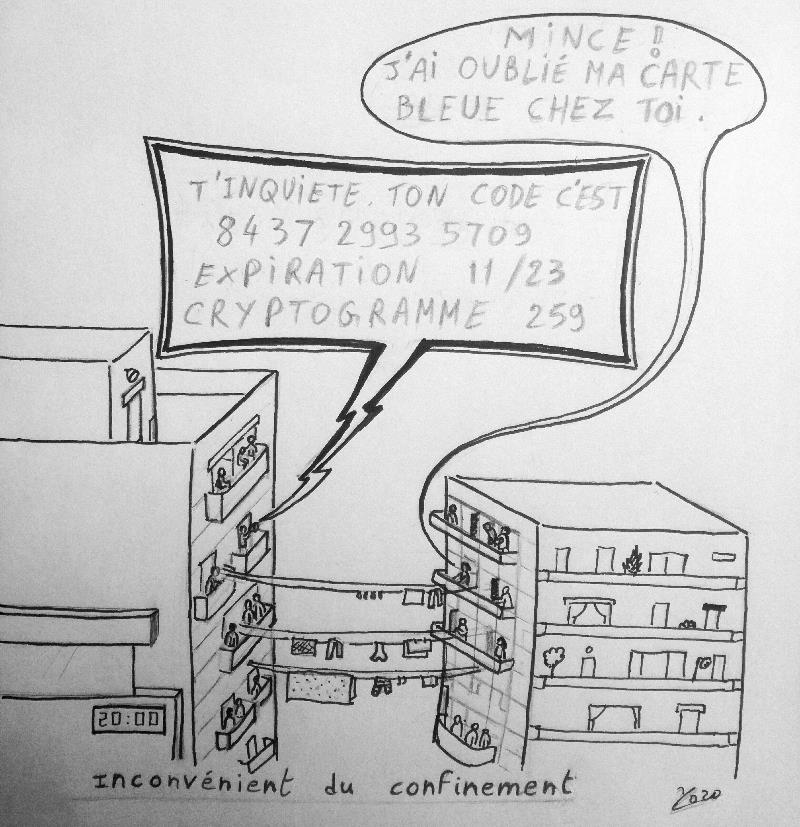 MINCE !!
J'AI OUBLIÉ MA CARTE
BLEUE CHEZ TOI.
T'INQUIETE. TON CODE C'EST
8437 2993 5709
EXPIRATION 11/23
CRYPTOGRAMME 259
20:00
Inconvénient du confinement
2020